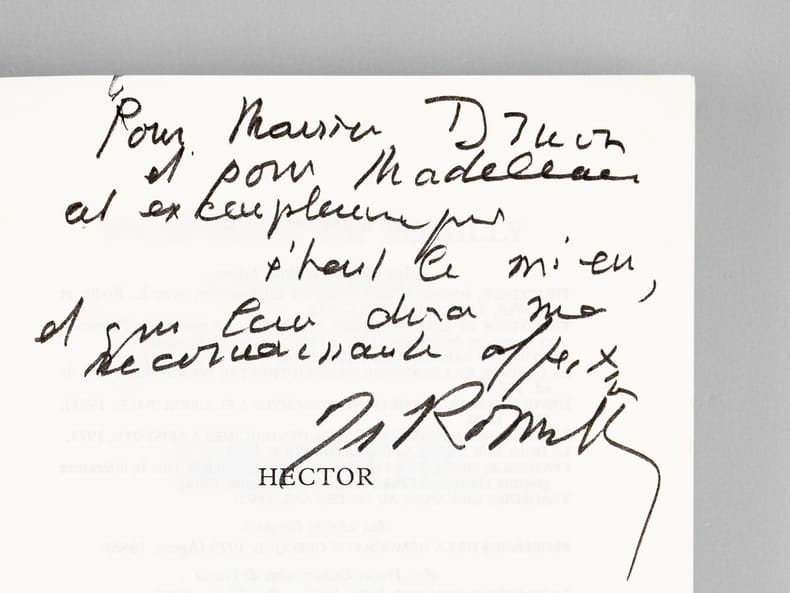 Pour Maurice Druon
et pour Madeleine
cet exemplaire qui
était le mien,
et qui leur dira ma
reconnaissante affection
J. de Romilly
HECTOR